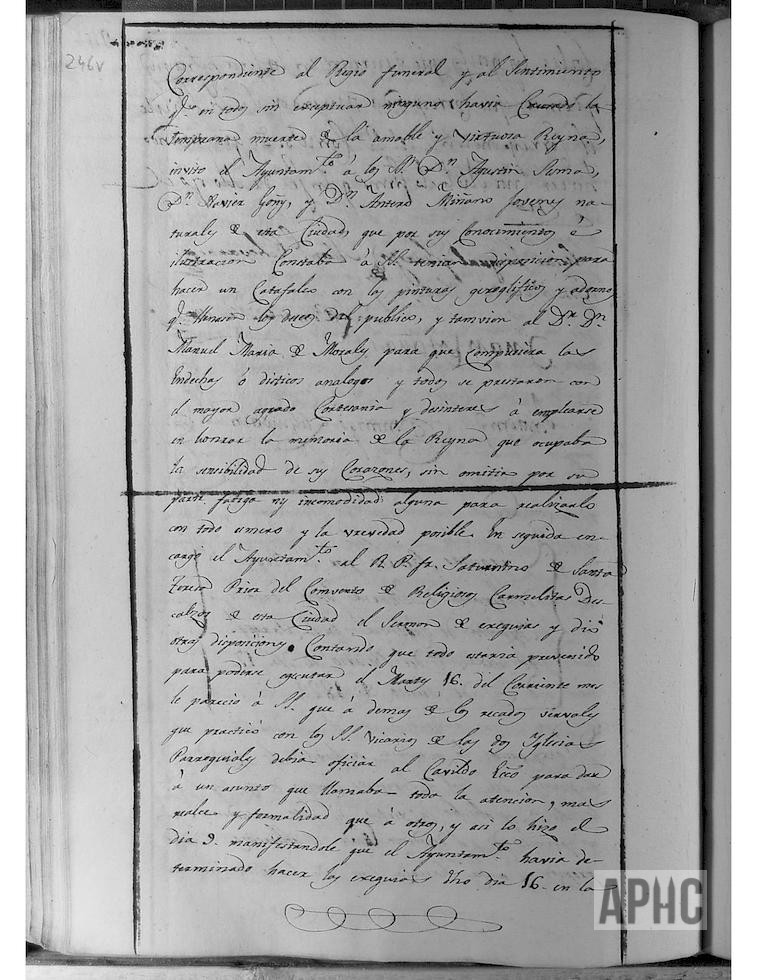 246v
Correspondiente al Regio funeral y al Sentimiento
q.e en todos sin exceptuar ninguno havia Causado la
temprana muerte de la amable y virtuosa Reyna,
invito el Ayuntam.to á los S.S. D.n Agustin Serna,
D.n Xavier Goñy, y D.n Antero Miñano Jovenes na-
turales de esta Ciudad, que por sus Conocimientos é
ilustracion Constaba á S.S. tenian disposicion para
hacer un Catafalco con las pinturas geroglificos y adorno
q.e llenasen los deseos del publico, y tamvien al D.r D.n
Manuel Maria de Morales para que Compusiera las
Endechas ó disticos analogos y todos se prestaron con
el mayor agrado Cortesania y desinteres á emplearse
en honrar la memoria de la Reyna que ocupaba
la sensibilidad de sus Corazones, sin omitir por su
parte fatiga ny incomodidad alguna para realizarlo
con todo esmero y la vrevedad posible. En seguida en-
cargó el Ayuntam.to al R. P. fr. Saturnino de Santa
Teresa Prior del Comvento de Religiosos Carmelitas Des-
calzos de esta Ciudad el Sermon de exequias y dió
otras disposiciones. Contando que todo estaria prevenido
para poderse egecutar el Martes 16. del Corriente mes
le pareció á S.S. que á demas de los recados vervales
que practicó con los S.S. Vicarios de las dos Iglesias
Parroquiales debia oficiar al Cavildo Ecc.o para dar
á un asunto que llamaba toda la atencion, mas
realce y formalidad que á otros, y asi lo hizo el
dia 9. manifestandole que el Ayuntam.to havia de-
terminado hacer las exequias dho dia 16. en la
APHC